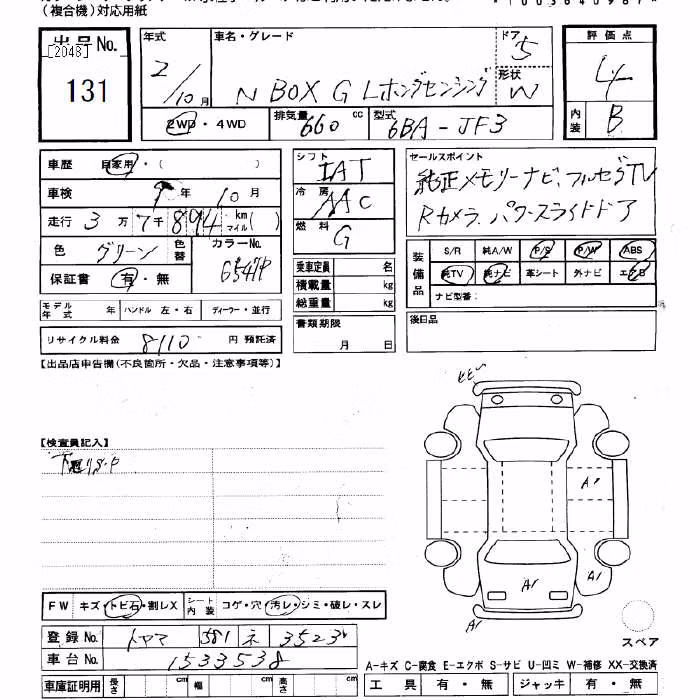 (複合機)対応用紙
出品No.
[2048]
131
年式
2/10月
車名・グレード
N BOX G Lホンダセンシング
ドア
5
形状
W
2WD・4WD
排気量 660 cc
型式 6BA-JF3
評価点
4
内装 B
車歴 自家用・( )
車検 年 10月
走行 3万7千894 km マイル( )
色 グリーン 色替
カラーNo.
保証書 有・無
シフト IAT
冷房 AAC
燃料 G
乗車定員 名
積載量 kg
総重量 kg
セールスポイント
純正メモリーナビ、フルセグTV
Rカメラ、パワースライドドア
装備品
S/R 純A/W P/S P/W ABS
純TV 純ナビ 革シート 外ナビ エアB
ナビ型番:
モデル年式 年 ハンドル 左・右 ディーラー・並行
リサイクル料金 8110 円 預託済
書類期限
月 日
後日品
【出品店申告欄(不良箇所・欠品・注意事項等)】
【検査員記入】
A1
A1
A1
A1
FW キズ・トビ石・割レX シート内装 コゲ・穴・汚レ・シミ・破レ・スレ
登録No. トヤマ 581 ネ 3523
車台No. 1533538
車庫証明用 長さ cm 幅 cm 高さ cm
スペア
A-キズ C-腐食 E-エクボ S-サビ U-凹ミ W-補修 XX-交換済
工具 有・無 ジャッキ 有・無